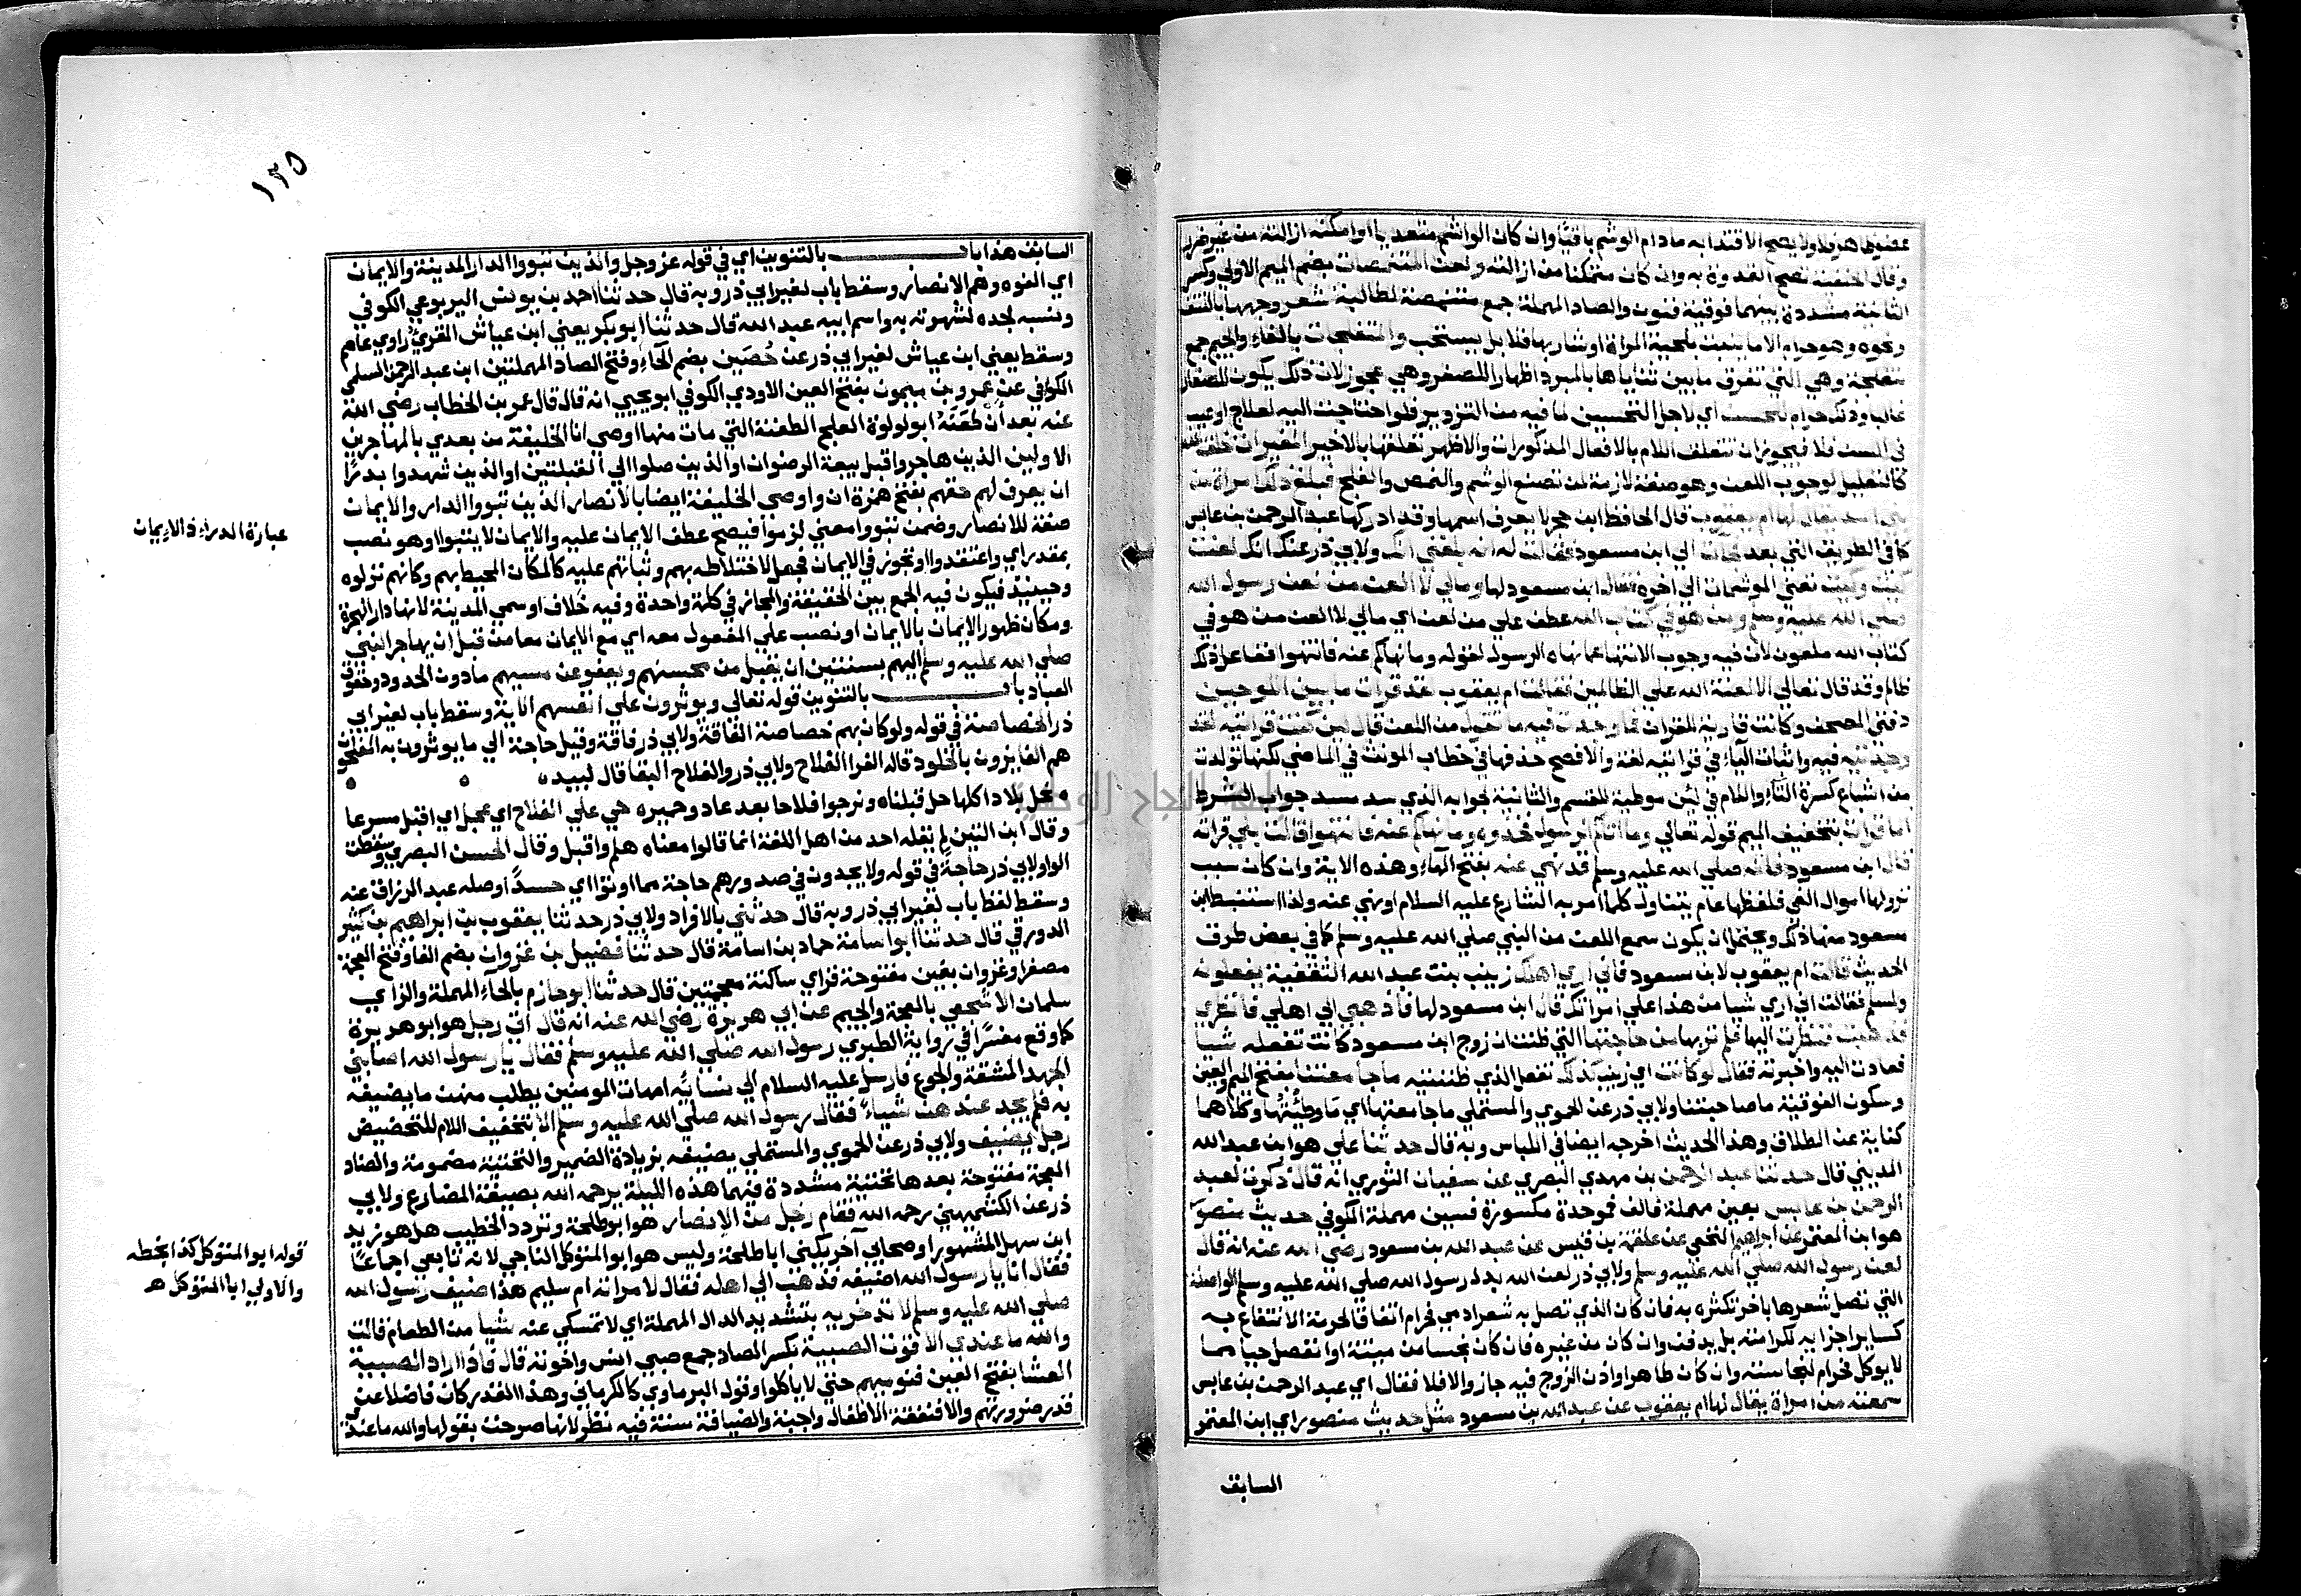 عضوها هدر فلا ولا يصح الاقتدا به مادام الوشم باقيا وان كان الواشم متعديا او امكنه ازالته من غير ضرر
وقال الحنفية تصح القدوة به وان كان متمكنا من ازالته ولعن المتنمصات بضم الميم الاولي وكسر
الثانية مشددة بينهما فوقية فنون والصاد المهملة جمع متنمصة لطالبة شعر وجهها بالنتف
ونحوه وهو حرام الا ما ينبت بلحية المراة او شاربها فلا بل يستحب والمتفلجات بالفاء والجيم جمع
متفلجة وهي التي تفرق ما بين ثناياها بالمبرد اظهارا للصغر وهي عجوز لان ذلك يكون للصغار
غالبا وذلك حرام للحسن اي لاجل التحسين لما فيه من التزوير فلو احتاجت اليه لعلاج او عيب
في السن فلا فيجوز ان تتعلق اللام بالافعال المذكورات والاظهر تعلقها بالاخير المغيرات خلق الله
كالتعليل لوجوب اللعن وهو صفة لازمة لمن تصنع الوشم والنمص والفلج فبلغ ذلك امراة من
بني اسد يقال لها ام يعقوب قال الحافظ ابن حجر لا يعرف اسمها وقد ادركها عبد الرحمن بن عابس
كما في الطريق التي بعد فجات الي ابن مسعود فقالت له انه بلغني انك ولابي ذر عنك انك لعنت
كيت وكيت تعني الموشمات الي اخره فقال ابن مسعود لها ومالي لا العن من لعن رسول الله
صلي الله عليه وسلم ومن هو في كتاب الله عطف علي من لعن اي مالي لا العن من هو في
كتاب الله ملعون لان فيه وجوب الانتها عما نهاه الرسول لقوله وما نهاكم عنه فانتهوا ففاعل ذلك
ظالم وقد قال تعالي الا لعنة الله علي الظالمين فقالت ام يعقوب لقد قرات ما بين اللوحين
دفتي المصحف وكانت قارية للقران فما وجدت فيه ما تقول من اللعن قال لين كنت قراتيه لقد
وجدتيه فيه واثبات الياء في قراتيه لغة والافصح حذفها في خطاب المونث في الماضي لكنها تولدت
من اشباع كسرة التاء واللام في لئن موطية للقسم والثانية لجوابه الذي سد مسد جواب الشرط
اما قرات بتخفيف الميم قوله تعالي وما اتاكم الرسول فخذوه وما نهاكم عنه فانتهوا قالت بلي قراته
قال ابن مسعود فانه صلي الله عليه وسلم قد نهي عنه بفتح الهاء وهذه الاية وان كان سبب
نزولها اموال الفي فلفظها عام يتناول كلما امر به الشارع عليه السلام او نهي عنه ولذا استنبط ابن
مسعود منها ذلك ويحتمل ان يكون سمع اللعن من النبي صلي الله عليه وسلم كما في بعض طرق
الحديث قالت ام يعقوب لابن مسعود فاني اري اهلك زينب بنت عبد الله الثقفية يفعلونه
ولمسلم فقالت اني اري شيا من هذا علي امراتك قال ابن مسعود لها فاذهبي الي اهلي فانظري
فذهبت فنظرت اليها فلم تر بها من حاجتها التي ظنت ان زوج ابن مسعود كانت تفعله شيا
فعادت اليه واخبرته فقال لو كانت اي زينب كذلك تفعل الذي ظننتيه ما جامعتنا بفتح الميم والعين
وسكون الفوقية ما صاحبتنا ولابي ذر عن الحموي والمستملي ما جامعتها اي ما وطئتها وكلاهما
كناية عن الطلاق وهذا الحديث اخرجه ايضا في اللباس وبه قال حدثنا علي هو ابن عبد الله
المديني قال حدثنا عبد الرحمن بن مهدي البصري عن سفيان الثوري انه قال ذكرت لعبد
الرحمن بن عابس بعين مهملة فالف فموحدة مكسورة فسين مهملة الكوفي حديث منصور
هو ابن المعتمر عن ابراهيم النخعي عن علقمة بن قيس عن عبد الله بن مسعود رضي الله عنه انه قال
لعن رسول الله صلي الله عليه وسلم ولابي ذر لعن الله بدل رسول الله صلي الله عليه وسلم الواصلة
التي تصل شعرها باخر تكثره به فان كان الذي تصل به شعر ادمي فحرام اتفاقا لحرمة الانتفاع به
كساير اجزايه لكرامته بل يدفن وان كان من غيره فان كان نجسا من ميتة او انفصل حيا مما
لا يوكل فحرام لنجاسته وان كان طاهرا واذن الزوج فيه جاز والا فلا فقال اي عبد الرحمن بن عابس
سمعته من امراة يقال لها ام يعقوب عن عبد الله بن مسعود مثل حديث منصور اي ابن المعتمر
السابق
١٣٥
السابق هذا باب بالتنوين اي في قوله عز وجل والذين تبووا الدار المدينة والايمان
اي الفوه وهم الانصار وسقط باب لغير ابي ذر وبه قال حدثنا احمد بن يونس اليربوعي الكوفي
ونسبه لجده لشهرته به واسم ابيه عبد الله قال حدثنا ابو بكر يعني ابن عياش القري راوي عاصم
وسقط يعني ابن عياش لغير ابي ذر عن حُصَين بضم الحاء وفتح الصاد المهملتين ابن عبد الرحمن السلمي
الكوفي عن عمرو بن ميمون بفتح العين الاودي الكوفي ابو يحيي انه قال قال عمر بن الخطاب رضي الله
عنه بعد أن طعنه ابو لولوة العلج الطعنة التي مات منها اوصي انا الخليفة من بعدي بالمهاجرين
الاولين الذين هاجروا قبل بيعة الرضوان او الذين صلوا الي القبلتين او الذين شهدوا بدرًا
ان يعرف لهم حقهم بفتح همزة ان واوصي الخليفة ايضا بالانصار الذين تبووا الدار والايمان
صفة للانصار وضمن تبووا معني لزموا فيصح عطف الايمان عليه والايمان لا يتبوا او هو نصب
بمقدر اي واعتقدوا او تجوز في الايمان فجعل لاختلاطه بهم وثباتهم عليه كالمكان المحيط بهم وكانهم نزلوه
وحينيذ فيكون فيه الجمع بين الحقيقة والمجاز في كلمة واحدة وفيه خلاف او سمي المدينة لانها دار الهجرة
ومكان ظهور الايمان بالايمان او نصب علي المفعول معه اي مع الايمان معا من قبل ان يهاجر النبي
صلي الله عليه وسلم اليهم بسنتين ان يقبل من محسنهم ويعفو عن مسيهم مادون الحدود وحقوق
العباد باب بالتنوين قوله تعالي ويوثرون علي انفسهم الاية وسقط باب لغير ابي
ذر الخصاصة في قوله ولو كان بهم خصاصة الفاقة ولابي ذر فاقة وقيل حاجة الي ما يوثرون به المفلحون
هم الفايزون بالخلود قاله الفرا الفلاح ولابي ذر والفلاح البقا قال لبيد ه
ه نحل بلادا كلها حل قبلنا ه ونرجوا فلاحا بعد عاد وحميره حي علي الفلاح اي عجل اي اقبل مسرعا
وقال ابن التين لم يقله احد من اهل اللغة انما قالوا معناه هلم واقبل وقال الحسن البصري وسقطت
الواو لابي ذر حاجةً في قوله ولا يجدون في صدورهم حاجة مما اوتوا اي حسدًا اوصله عبد الرزاق عنه
وسقط لفظ باب لغير ابي ذر وبه قال حدثني بالافراد ولابي ذر حدثنا يعقوب بن ابراهيم بن كثير
الدورقي قال حدثنا ابو اسامة حماد بن اسامة قال حدثنا فضيل بن غزوان بضم الفا وفتح المعجمة
مصغرا وغزوان بغين مفتوحة فزاي ساكنة معجمتين قال حدثنا ابو حازم بالحاء المهملة والزاي
سلمان الاشجعي بالمعجمة والجيم عن ابي هريرة رضي الله عنه انه قال اتي رجل هو ابو هريرة
كما وقع مفسرًا في رواية الطبري رسول الله صلي الله عليه وسلم فقال يا رسول الله اصابني
الجهد المشقة والجوع فارسل عليه السلام الي نسايه امهات المومنين يطلب منهن ما يضيفه
به فلم يجد عندهن شيياءً فقال رسول الله صلي الله عليه وسلم الا بتخفيف اللام للتحضيض
رجل يضيف ولابي ذر عن الحموي والمستملي يضيفه بزيادة الضمير والتحتية مضمومة والضاد
المعجمة مفتوحة بعدها تحتية مشددة فيهما هذه الليلة يرحمه الله بصيغة المضارع ولابي
ذر عن الكشميهني رحمه الله فقام رجل من الانصار هو ابو طلحة وتردد الخطيب هل هو زيد
ابن سهل المشهور او صحابي آخر يكني ابا طلحة وليس هو ابو المتوكل الناجي لانه تابعي اجماعًا
فقال انا يا رسول الله اضيفه فذهب الي اهله فقال لامراته ام سليم هذا ضيف رسول الله
صلي الله عليه وسلم لا تدخريه بتشديد الدال المهملة اي لا تمسكي عنه شيا من الطعام قالت
والله ما عندي الا قوت الصبية بكسر الصاد جمع صبي انس واخوته قال فاذا اراد الصبية
العشا بفتح العين فنوميهم حتي لا ياكلوا وقول البرماوي كالكرماني وهذا القدر كان فاضلا عن
قدر ضرورتهم والا فنفقة الاطفال واجبة والضيافة سنة فيه نظر لانها صرحت بقولها والله ما عندي
عبارة الدراء ذ الايمان
قوله ابو المتوكل كذا بخطه
والاولي ابا المتوكل هـ